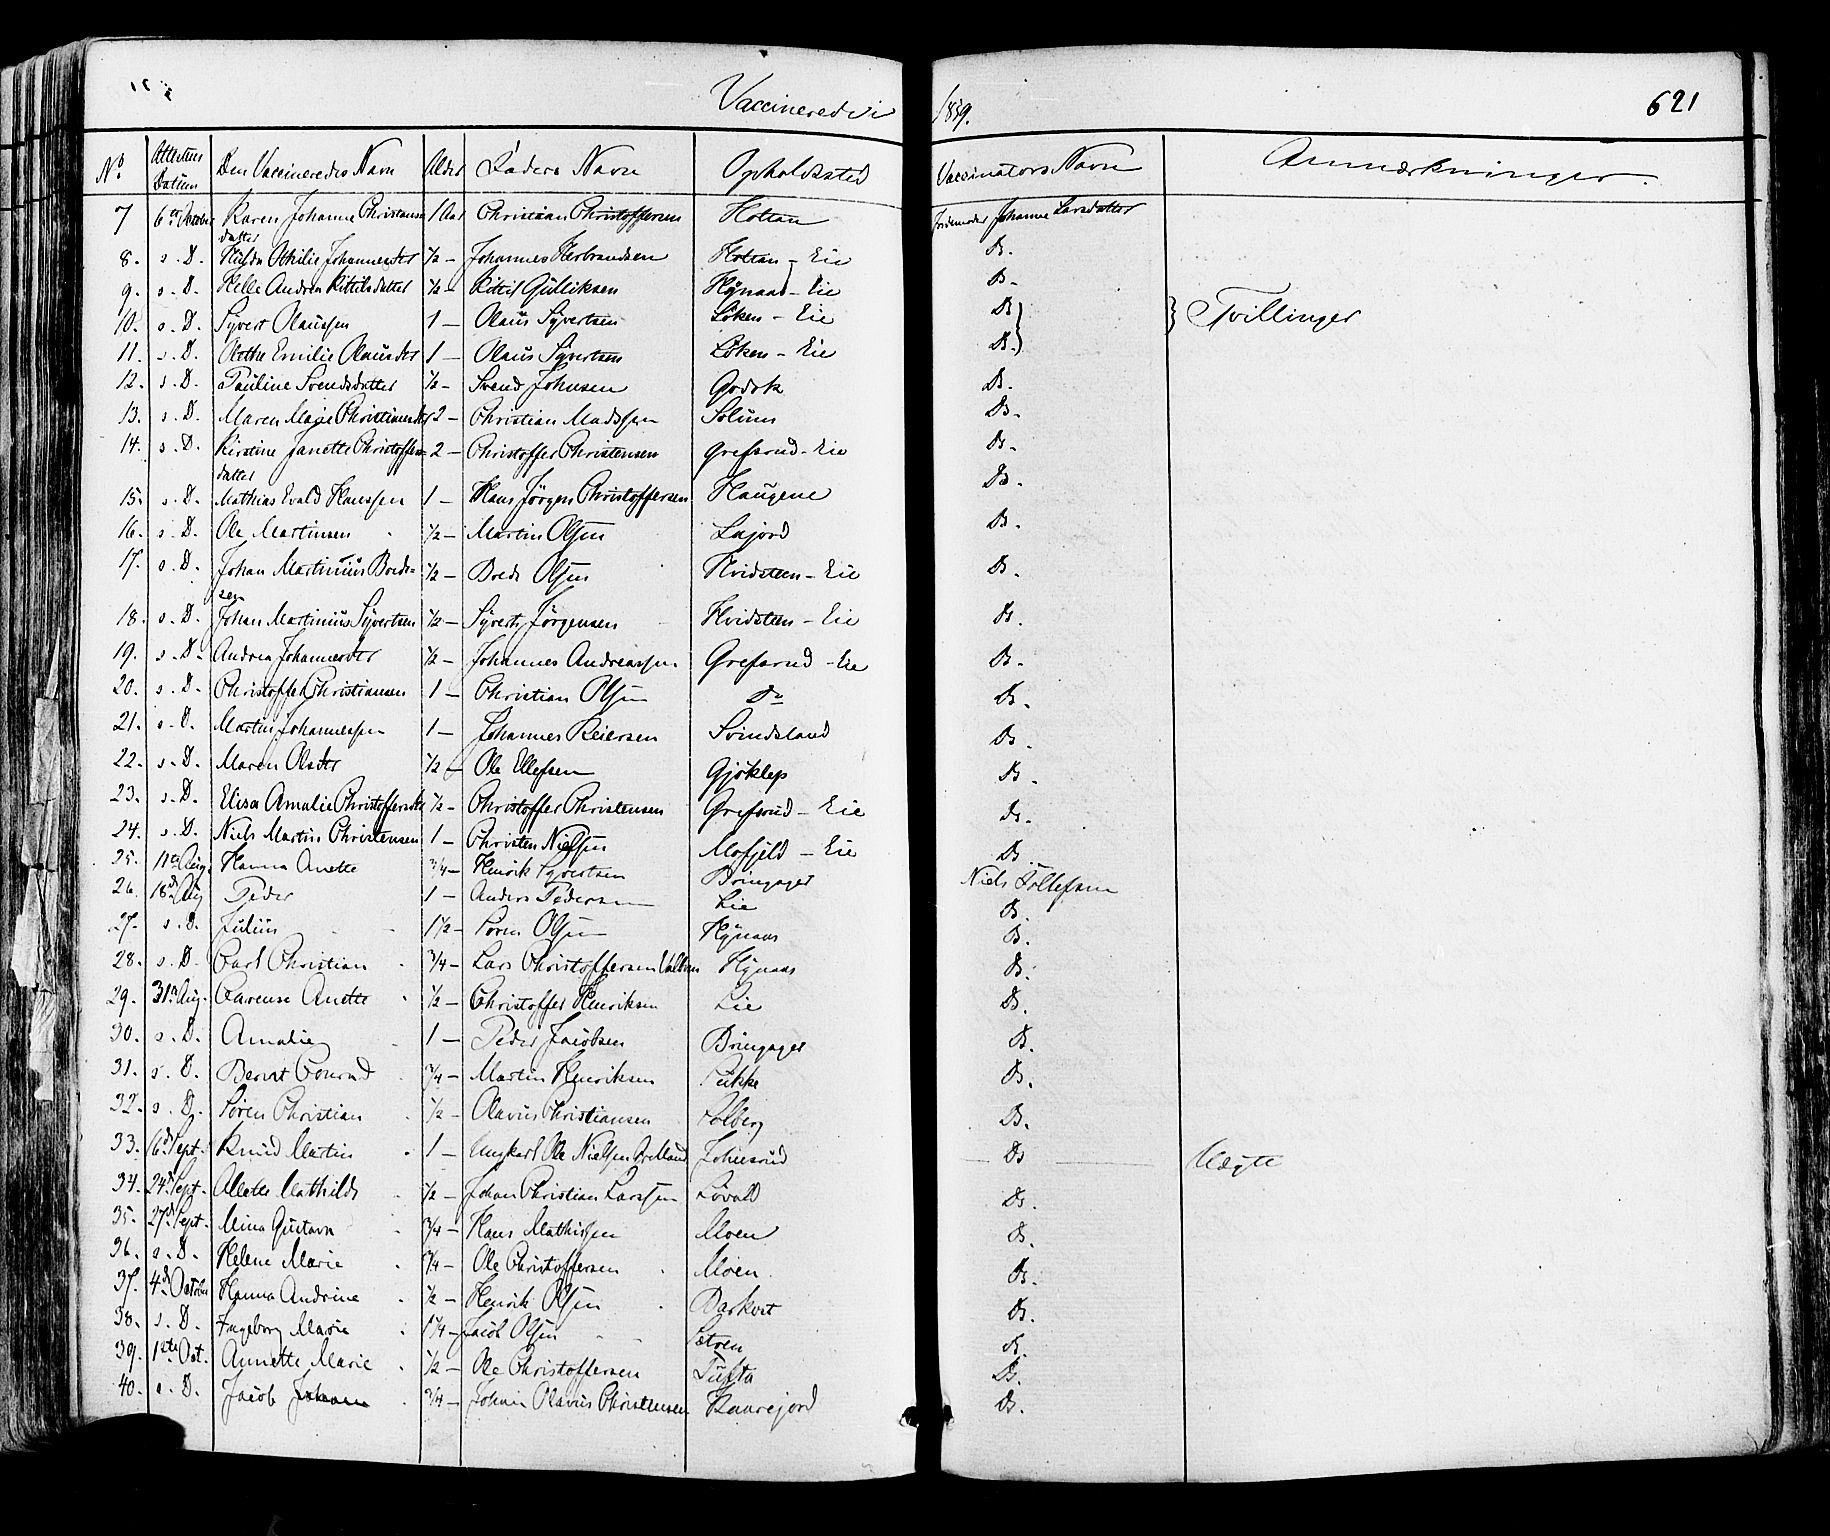 Vaccinerede i 1859. 621
No Attestens Datum Den Vaccineredes Navn Alder Faders Navn Opholdssted Vaccinators Navn Anmærkninger.
7 6te October Karen Johanne Christians datter 1 Aar Christian Christoffersen Holtan Jordemoder Johanne Larsdatter
8. s. D. Hulda Othilie Johannesdtr ½ — Johannes Herbrandsen Holtan – Eie Ds.
9. s. D. Helle Andrea Kittilsdatter ½ — Kittil Gulliksen Hynaas – Eie Ds.
10. s. D. Syvert Olaussen 1 — Olaus Syvertsen Løken – Eie Ds } } Tvillinger
11. s. D. Olethe Emilie Olausdtr 1 — Olaus Syvertsen Løken – Eie Ds. }
12. s. D. Pauline Svendsdatter ½ — Svend Johnsen Ds.
13. s. D. Maren Marie Christiansdtr 2 — Christian Madssen Solum Ds.
14. s. D. Kirstine Janette Christoffers= datter 2 — Christoffer Christensen Grefsrud – Eie Ds.
15. s. D. Mathias Evald Hanssen 1 — Hans Jørgen Christoffersen Haugene Ds.
16. s. D. Ole Martinsen ½ — Martin Olsen Ds.
17. s. D. Johan Martinius Breds= sen ½ — Brede Olsen Hvidsteen – Eie Ds.
18. s. D. Johan Martinius Syvertsen ½ — Syvert Jørgensen Hvidsteen – Eie Ds.
19. s. D. Andrea Johannesdtr ½ — Johannes Andreassen Grefsrud – Eie Ds.
20. s. D. Christoffer Christiansen 1 — Christian Olsen Do Ds.
21. s. D. Martin Johannessen 1 — Johannes Reiersen Svindsland Ds.
22. s. D. Maren Olsdtr ½ — Ole Ellefsen Gjøklep Ds.
23. s. D. Elisa Amalie Christoffersdtr ½ — Christoffer Christensen Grefsrud – Eie Ds.
24. s. D. Niels Martin Christensen 1 — Christen Nielsen Mofjeld – Eie Ds
25. 11te Aug. Hanna Anette ¾ — Henrik Syvertsen Bringager Niels Tollefsen
26. 18de Aug Peder 1 — Anders Pedersen Lie Ds.
27. s. D. Julius 1½ — Søren Olsen Hynaas Ds.
28. s. D. Carl Christian ¾ — Lars Christoffersen Hynaas Ds.
29. 31te Aug. Carense Anette ½ — Christoffer Henriksen Lie Ds.
30. s. D. Amalie 1 — Peder Jacobsen Bringager Ds.
31. s. D. Bernt Conrad ¾ — Martin Henriksen Pukke Ds.
32. s. D. Søren Christian ½ — Olavus Christiansen Solberg Ds.
33. 6de Sept. Knud Martin 1 — Ungkarl Ole Nielsen Johnsrud Ds Uægte
34. 24de Sept. Alette Mathilde ½ — Johan Christian Larssen Løvald Ds.
35. 27de Sept. Mina Gustava ¾ — Hans Mathissen Moen Ds.
36. s. D. Helene Marie ¾ — Ole Christoffersen Moen Ds.
37. 4de October Hanna Andrine ½ — Henrik Olsen Ds.
38. s. D. Ingeborg Marie 1¼ — Jacob Olsen Sætren Ds.
39. 1ste Oct. Annette Marie ½ — Ole Christoffersen Tufta Ds.
40. s. D. Jacob Johan ¾ — Johan Olavus Christensen Kaarejord Ds.